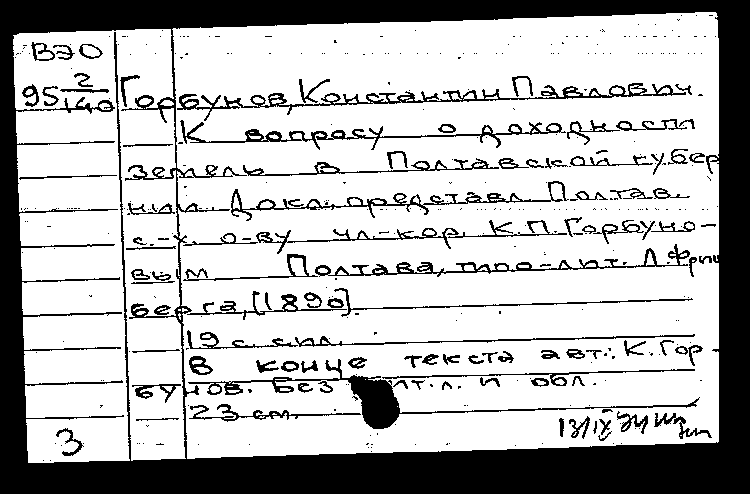 ВЭО
95 2/140 Горбунов, Константин Павлович.
К вопросу о доходности
земель в Полтавской губер
нии. Докл., представл. Полтав.
с.-х. о-ву чл.-кор. К.П. Горбуно-
вым Полтава, типо-лит. Л. Фриш
берга, [1890].
19 с. с ил.
В конце текста авт.: К. Гор-
бунов. Без тит. л. и обл.
23 см.
3